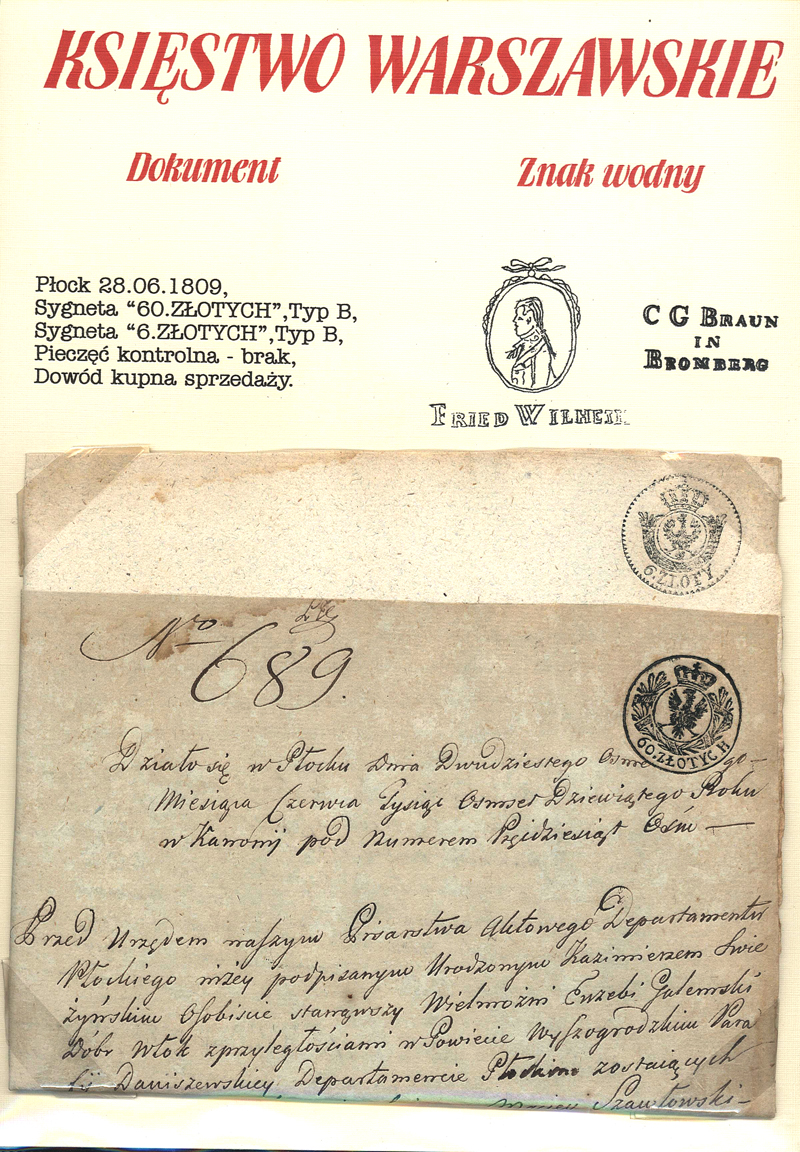 KSIĘSTWO WARSZAWSKIE
Dokument
Znak wodny
Płock 28.06.1809,
Sygneta “60.ZŁOTYCH”,Typ B,
Sygneta “6.ZŁOTYCH”,Typ B,
Pieczęć kontrolna - brak,
Dowód kupna sprzedaży.
C G BRAUN
IN
BROMBERG
FRIED WILHELM
6.ZŁOTY
No 689.
60.ZŁOTYCH
Działo się w Płocku Dnia Dwudziestego Osmego
Miesiąca Czerwca Tysiąc Osmset Dziewiątego Roku
w Kanonij pod Numerem Pięidziesiąt Ośm —
Przed Urzędem naszym Pisarstwa Aktowego Departamentu
Płockiego niżey podpisanym Urodzonym Kazimierzem Swie
żyńskim Osobiscie stanąwszy Wielmożni Euzebi Gulemski
Dóbr Włók zprzyległościami w Powiecie Wyszogrodzkim Para
fij Daniszewskiey Departamencie Płockim zostaiących
Szawłowski-